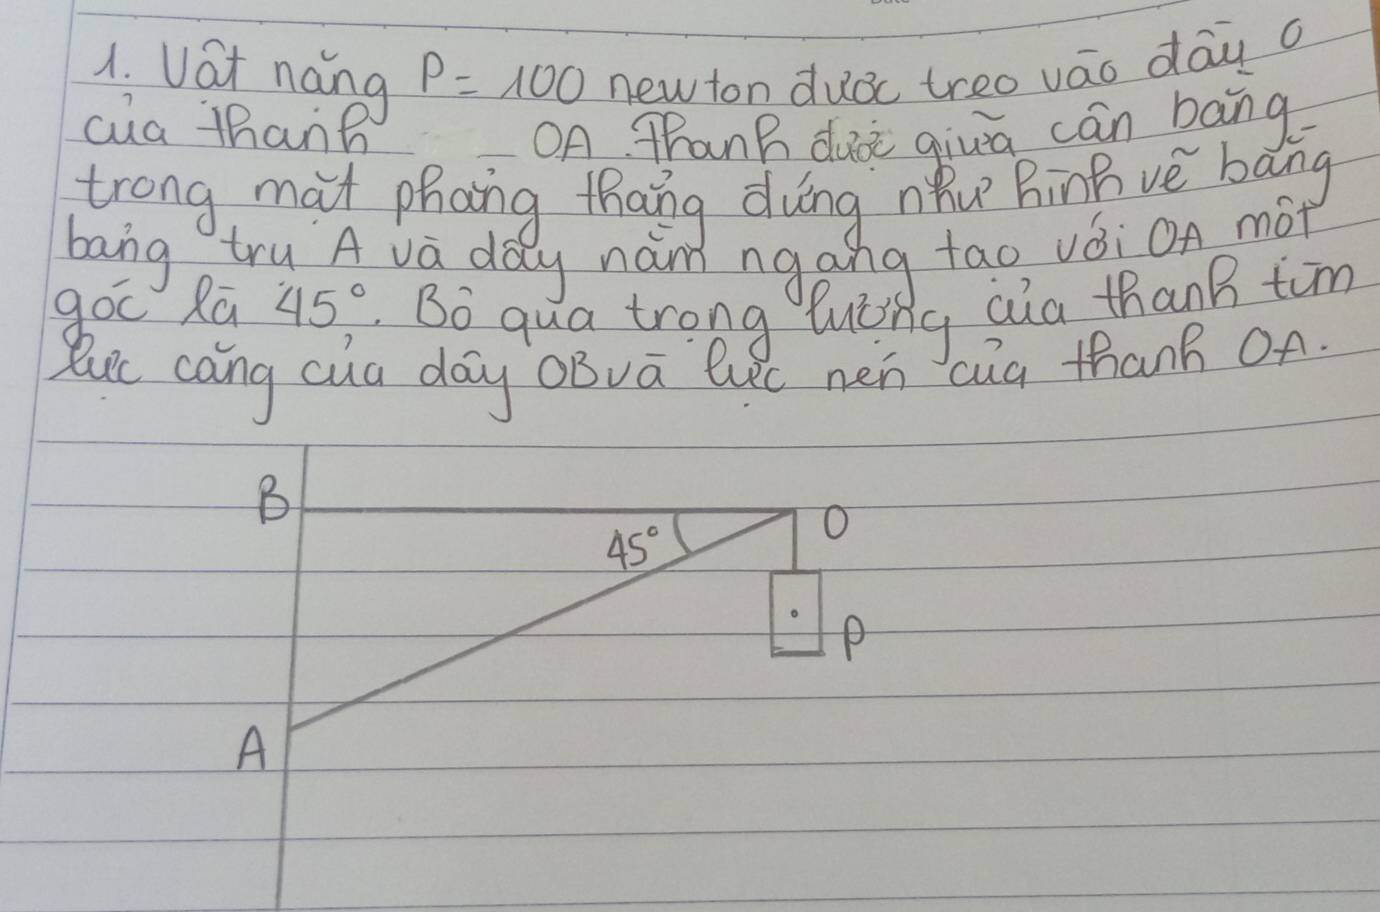 1. Vật nặng P = 100 newton được treo vào đầu O
của thanh OA. Thanh được giữa cân bằng
trong mặt phẳng thẳng đứng như hình vẽ bằng
bảng trụ A và dây nằm ngang tạo với OA một
góc là 45°. Bỏ qua trọng lượng của thanh tìm
lực căng của dây OB và lực nén của thanh OA.
B
45°
O
P
A